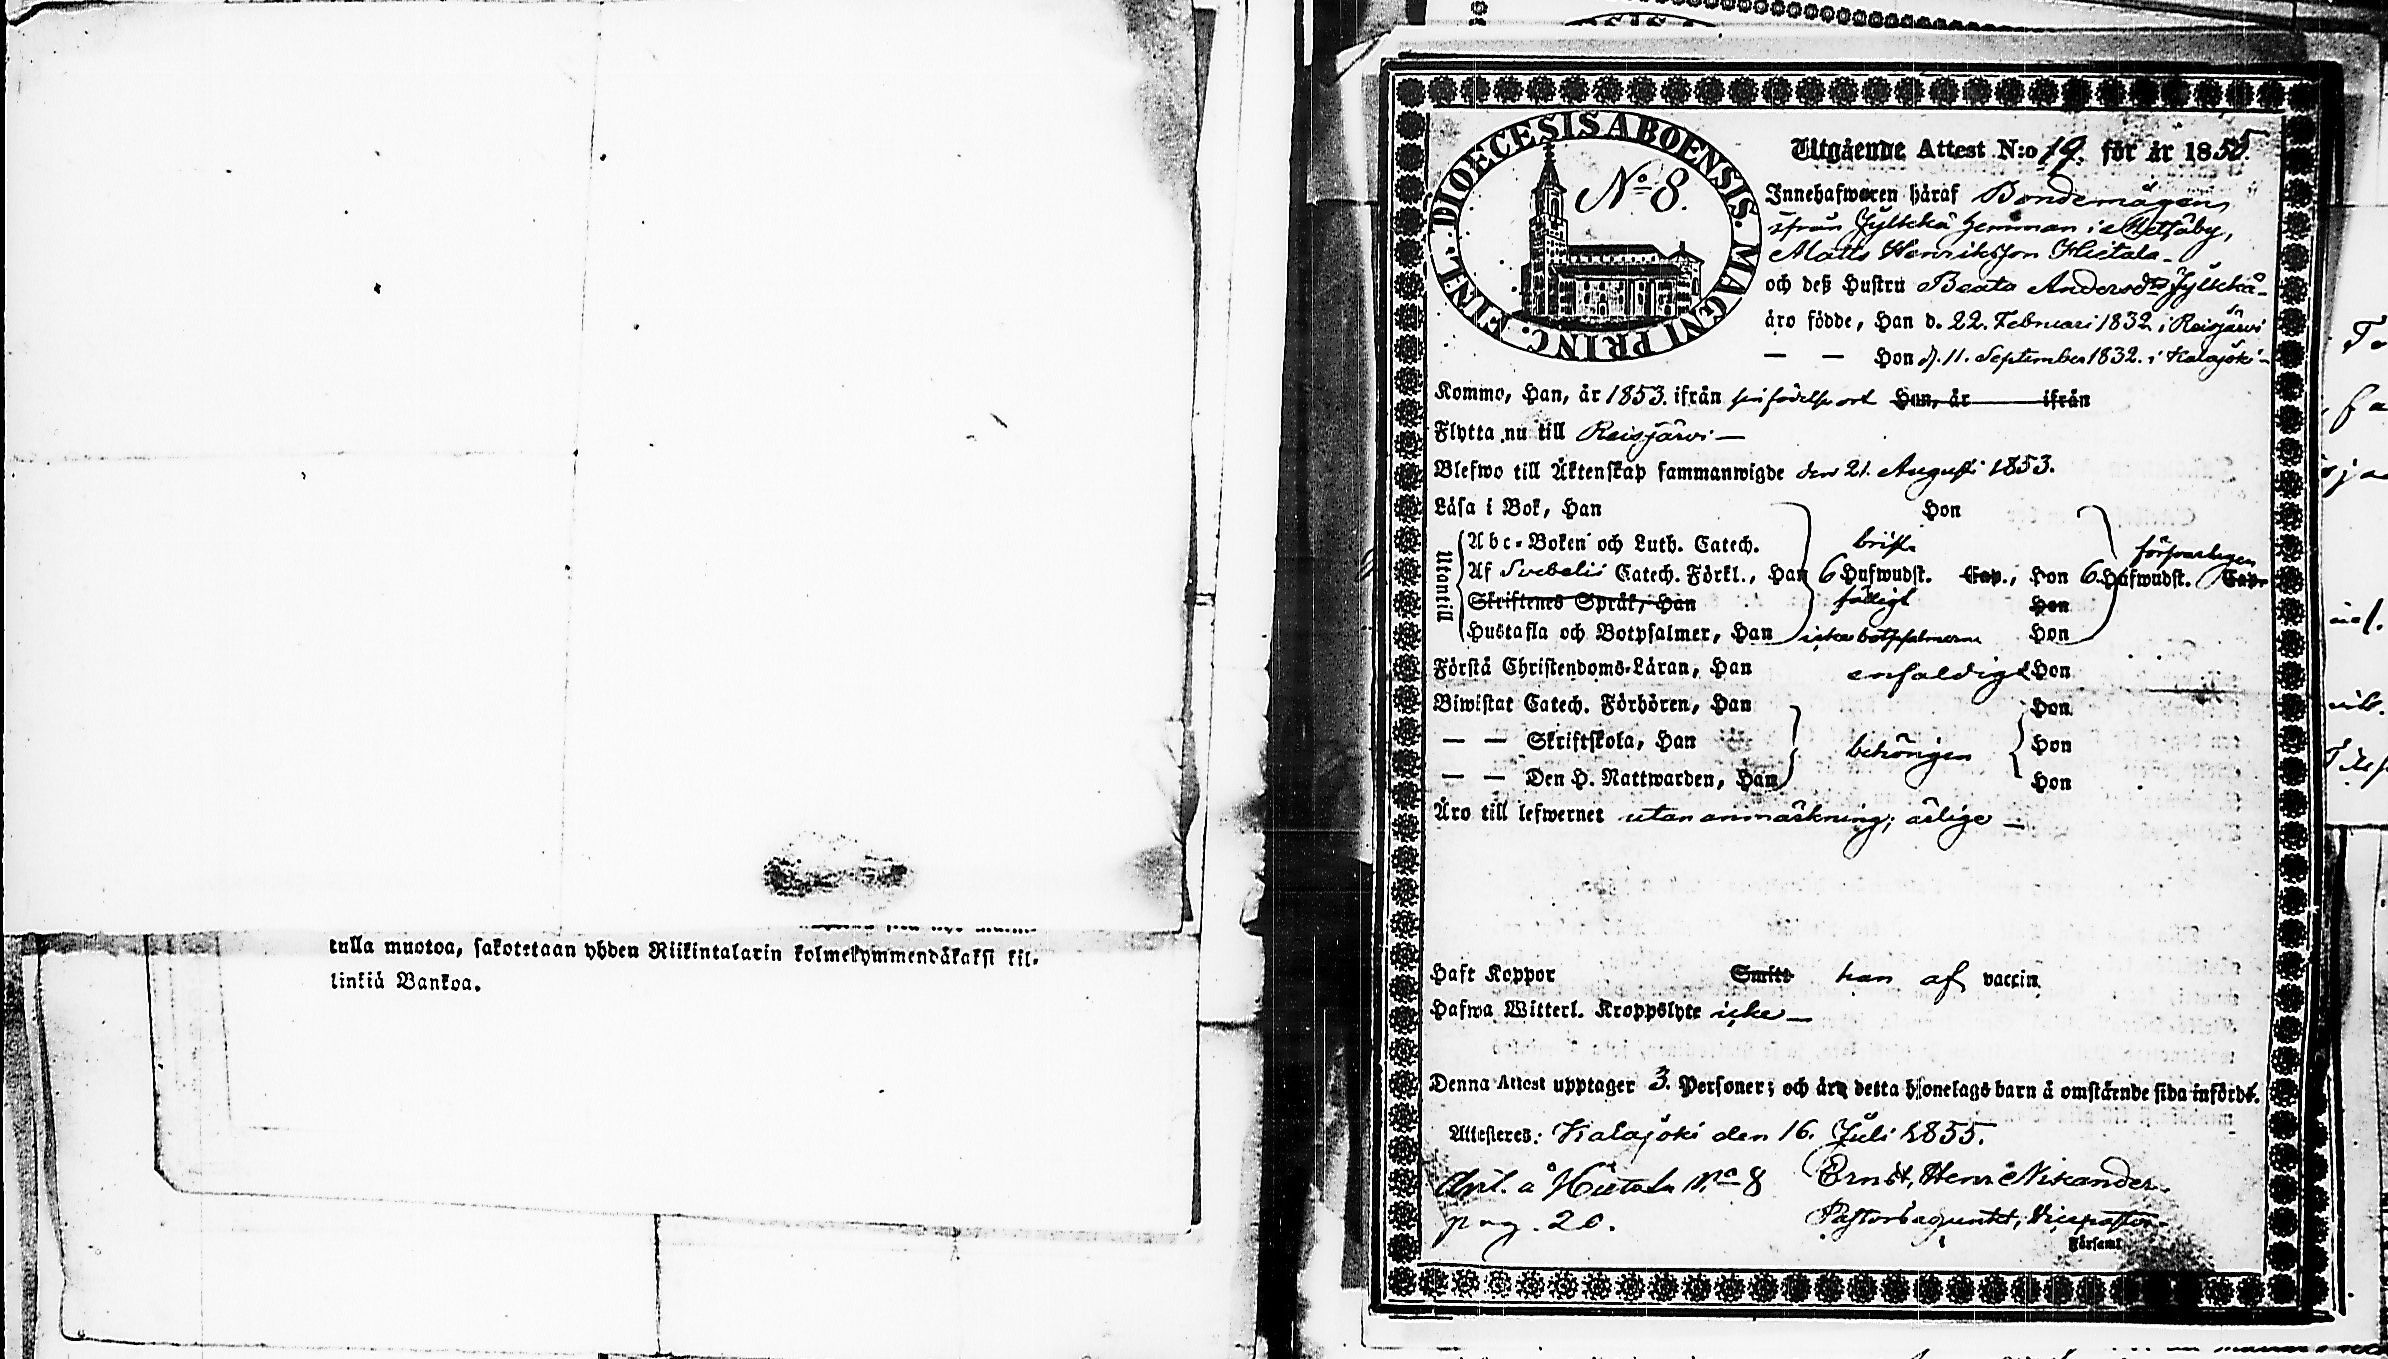 tulla muotoa, sakotetaan yhden Riikintalarin kolmekymmendäkaksi kil-
linkiä Bankoa.
DIOECESIS ABOENSIS. MAGNI PRINC. FINL.
N:o 8.
Utgående Attest N:o 19. för år 1855.
Innehafwaren häraf Bondemågen
ifrån Jylkkä hemman i Metsäby,
Matts Henriksson Hietala
och deß Hustru Beata Andersdr Jylkkä
äro födde, Han d. 22. Februari 1832 i Reisjärwi
— — Hon d. 11. September 1832. i Kalajoki
Kommo, Han, år 1853. ifrån sin födelse ort Hon, år ifrån
Flytta nu till Reisjärwi —
Blefwo till Äktenskap sammanwigde den 21. Augusti 1853.
Läsa i Bok, Han Hon
Utantill
Abc-Boken och Luth. Catech. brist.
Af Svebelii Catech. Förkl., Han 6 Hufwudst. Cap., Hon 6. Hufwudst. Cap.
försvarligen
Skriftenes Språk, Han fädigt Hon
Hustafla och Botpsalmer, Han icke botpsalmerna Hon
Förstå Christendoms-Läran, Han enfaldigt Hon
Biwistat Catech. Förhören, Han Hon
— — Skriftskola, Han behörigen Hon
— — Den H. Nattwarden, Han Hon
Äro till lefwernet utan anmärkning, ärlige —
Haft Koppor Smitt han af vaccin
Hafwa Witterl. Kroppslyte icke —
Denna Attest upptager 3. Personer; och äro detta hjonelags barn å omstående sida införde.
Attesteras: Kalajoki den 16. Juli 1855.
Ant. å Hietala N:o 8 Ernst Henr. Nikander.
pag. 20. Pastorsadjunkt, Vicepastor
i Församl.